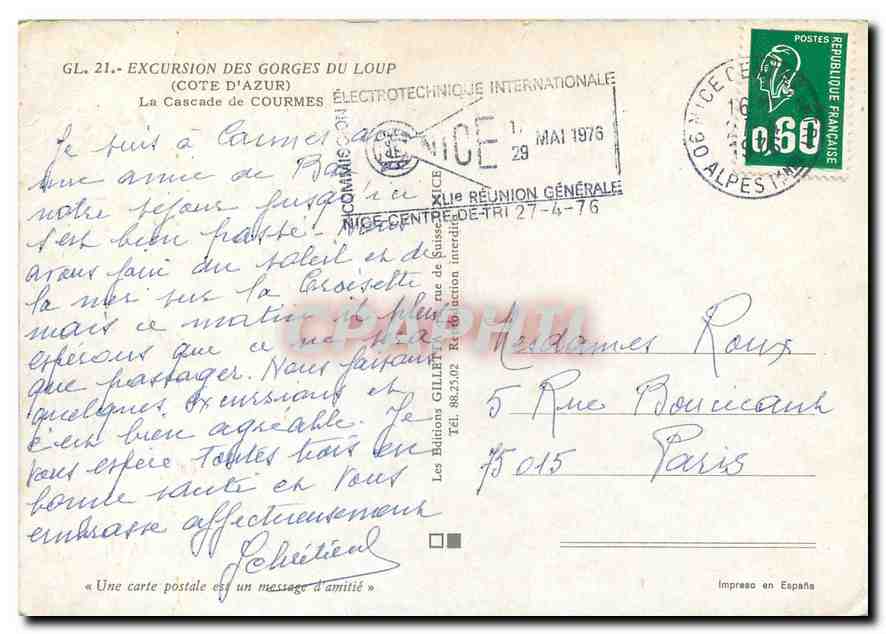 GL. 21.- EXCURSION DES GORGES DU LOUP
(COTE D'AZUR)
La Cascade de COURMES
COMMISSION ÉLECTROTECHNIQUE INTERNATIONALE
NICE 17
29 MAI 1976
XLIe RÉUNION GÉNÉRALE
NICE-CENTRE-DE-TRI 27-4-76
06 NICE
16
1976
ALPES
POSTES
RÉPUBLIQUE FRANÇAISE
0,60
Je suis à Cannes
une amie de
notre séjour jusqu'ici
s'est bien passé. Nous
avons faim du soleil et de
la mer sur la Croisette
mais ce matin il pleut
espérons que ce ne sera
que passager. Nous faisons
quelques excursions et
c'est bien agréable. Je
vous espère toutes trois en
bonne santé et vous
embrasse affectueusement
Mesdames Roux
5 Rue Boucicaut
75015 Paris
Les Editions GILLETTA rue de Suisse NICE
Tél. 88.25.02 Reproduction interdite
CPAPHIL
« Une carte postale est un message d'amitié »
Impreso en España